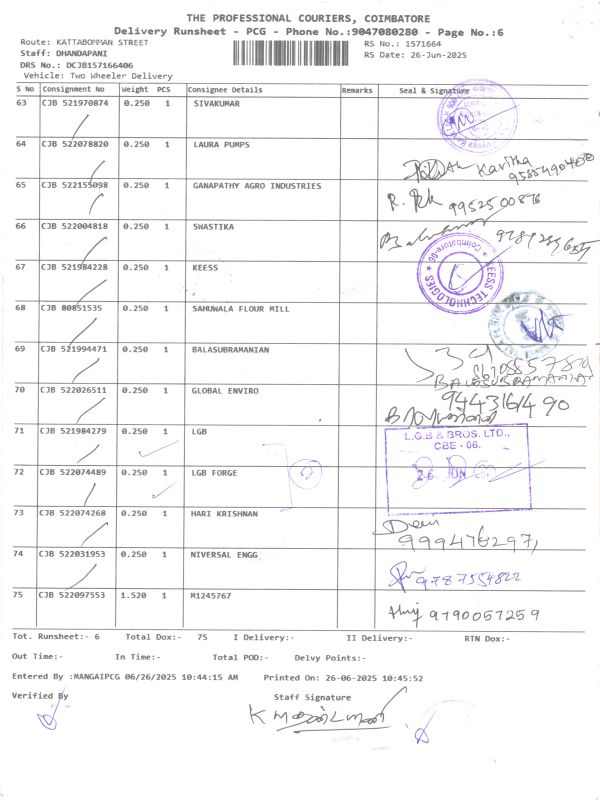 THE PROFESSIONAL COURIERS, COIMBATORE
Delivery Runsheet - PCG - Phone No.:9047080280 - Page No.:6
Route: KATTABOMMAN STREET
RS No.: 1571664
Staff: DHANDAPANI
RS Date: 26-Jun-2025
DRS No.: DCJB157166406
Vehicle: Two Wheeler Delivery
S No Consignment No Weight PCS Consignee Details Remarks Seal & Signature
63 CJB 521970874 0.250 1 SIVAKUMAR
64 CJB 522078820 0.250 1 LAURA PUMPS
Kavitha
65 CJB 522155098 0.250 1 GANAPATHY AGRO INDUSTRIES
9952500876
66 CJB 522004818 0.250 1 SWASTIKA
67 CJB 521984228 0.250 1 KEESS
KEESS TECHNOLOGIES ★ Coimbatore-06 ★
68 CJB 80851535 0.250 1 SAHUWALA FLOUR MILL
69 CJB 521994471 0.250 1 BALASUBRAMANIAN
70 CJB 522026511 0.250 1 GLOBAL ENVIRO
9443161490
71 CJB 521984279 0.250 1 LGB
L.G.B & BROS. LTD.,
CBE - 06.
72 CJB 522074489 0.250 1 LGB FORGE
26 JUN
73 CJB 522074268 0.250 1 HARI KRISHNAN
74 CJB 522031953 0.250 1 NIVERSAL ENGG
9787554822
75 CJB 522097553 1.520 1 M1245767
9790057259
Tot. Runsheet:- 6 Total Dox:- 75 I Delivery:- II Delivery:- RTN Dox:-
Out Time:- In Time:- Total POD:- Delvy Points:-
Entered By :MANGAIPCG 06/26/2025 10:44:15 AM Printed On: 26-06-2025 10:45:52
Verified By Staff Signature